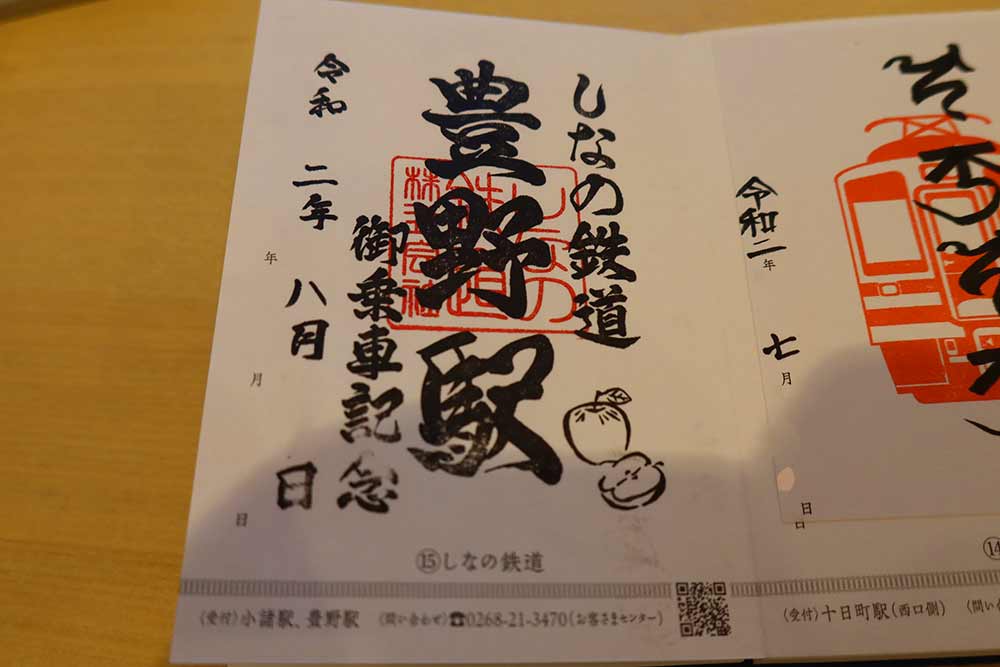 しなの鉄道
豊野駅
しなの
鉄道
株式会社
御乗車記念
令和 二年 八月 日
年
月
日
⑮しなの鉄道
〈受付〉小諸駅、豊野駅 〈問い合わせ〉☎0268-21-3470(お客さまセンター)
令和二年
七月
日
日
⑭
〈受付〉十日町駅(西口側) 〈問い